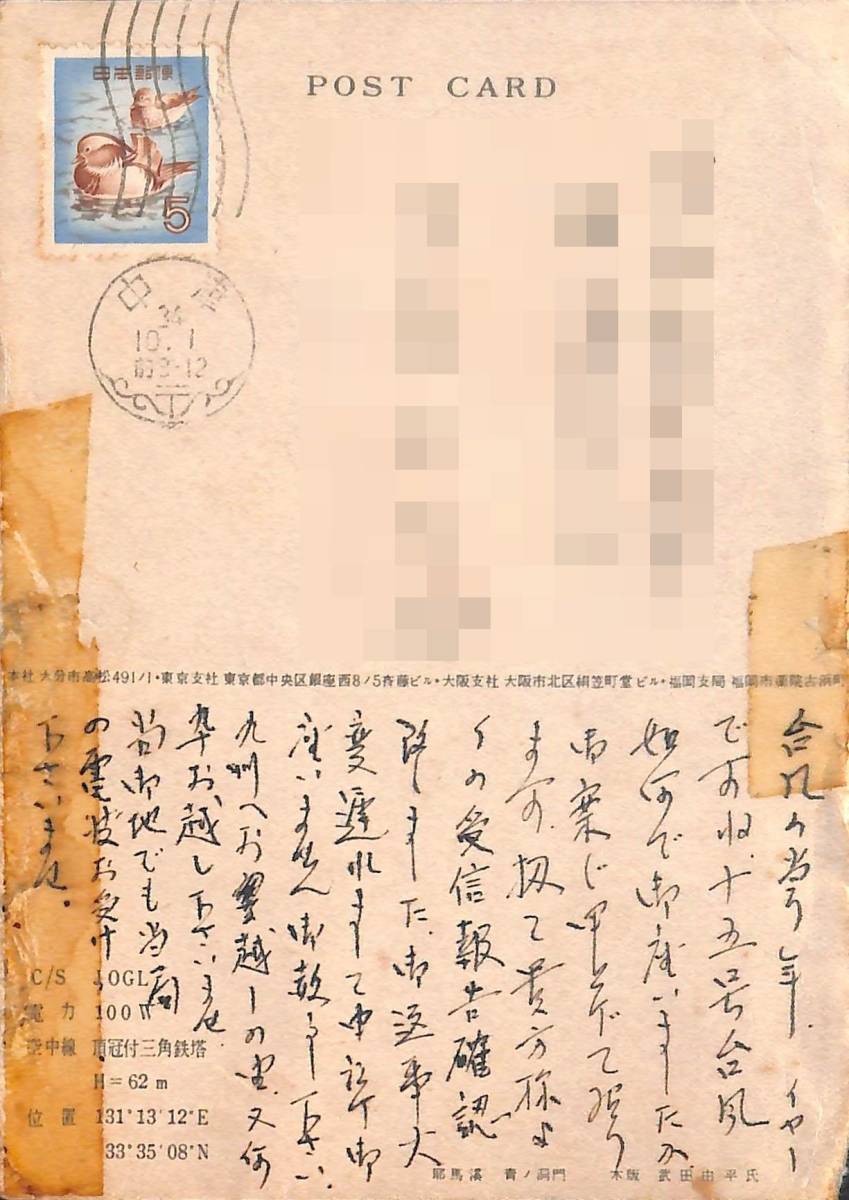 日本郵便
5
POST CARD
中津
34
10.1
前8-12
本社 大分市高松491ノ1・東京支社 東京都中央区銀座西8ノ5斉藤ビル・大阪支社 大阪市北区絹笠町堂ビル・福岡支局 福岡市薬院古浜町
台風の当り年、イヤー
ですね、十五号台風
如何で御座いましたか
御案じ申上げて居り
ます。扨て貴方様よ
りの受信報告確認
致しました、御返事大
変遅れまして申訳け御
座いません御赦し下さい、
九州へお越しの
卒お越し下さいませ
尚御地でも当局
の電波お受け
下さいませ。
C/S JOGL
電力 100W
空中線 頂冠付三角鉄塔
H=62m
位置 131°13′12″E
33°35′08″N
耶馬溪 青ノ洞門 木版 武田由平氏